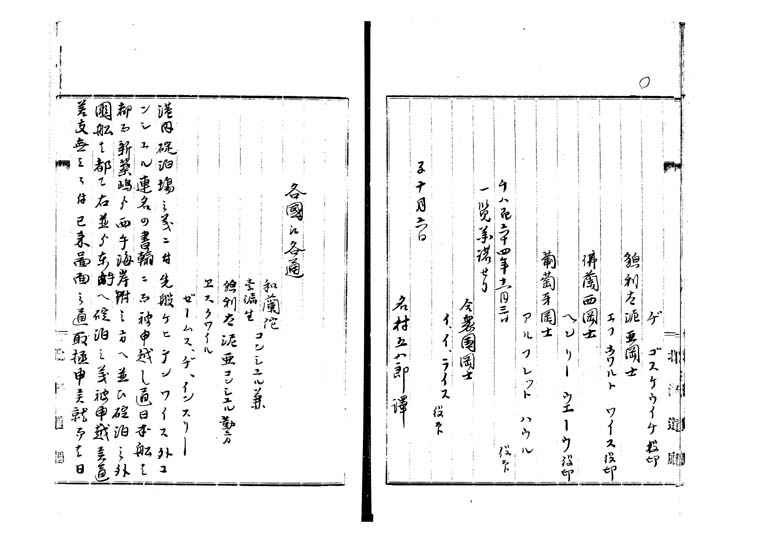 ゲ ゴスケウイケ 役印
貌利太泥亜岡士
エフホワルト ワイス 役印
佛蘭西岡士
ヘンリー ウエーウ 役印
葡萄牙岡士
アルフレット ハウル
役下
千八百六十四年十一月三日
一覧承諾せり
合衆国岡士
イ、イ、ライス 役下
子十月六日
名村五八郎 譯
各國江各通
和蘭佗 コンシュル兼
孛漏生
貌利太泥亜コンシュル勤方
エスクワイル
ゼームス、ゲ、インスリー
港内碇泊場之義ニ付先般ケヒテンワイス外コ
ンシュル連名の書翰ニ而被申越し通日本船も
都而新築嶋ゟ西手海岸附之方へ並ひ碇泊之外
國船も都て右並ゟ東南へ碇泊之義被申越候通
差支無之候付已来図面之通取極申候就而も日